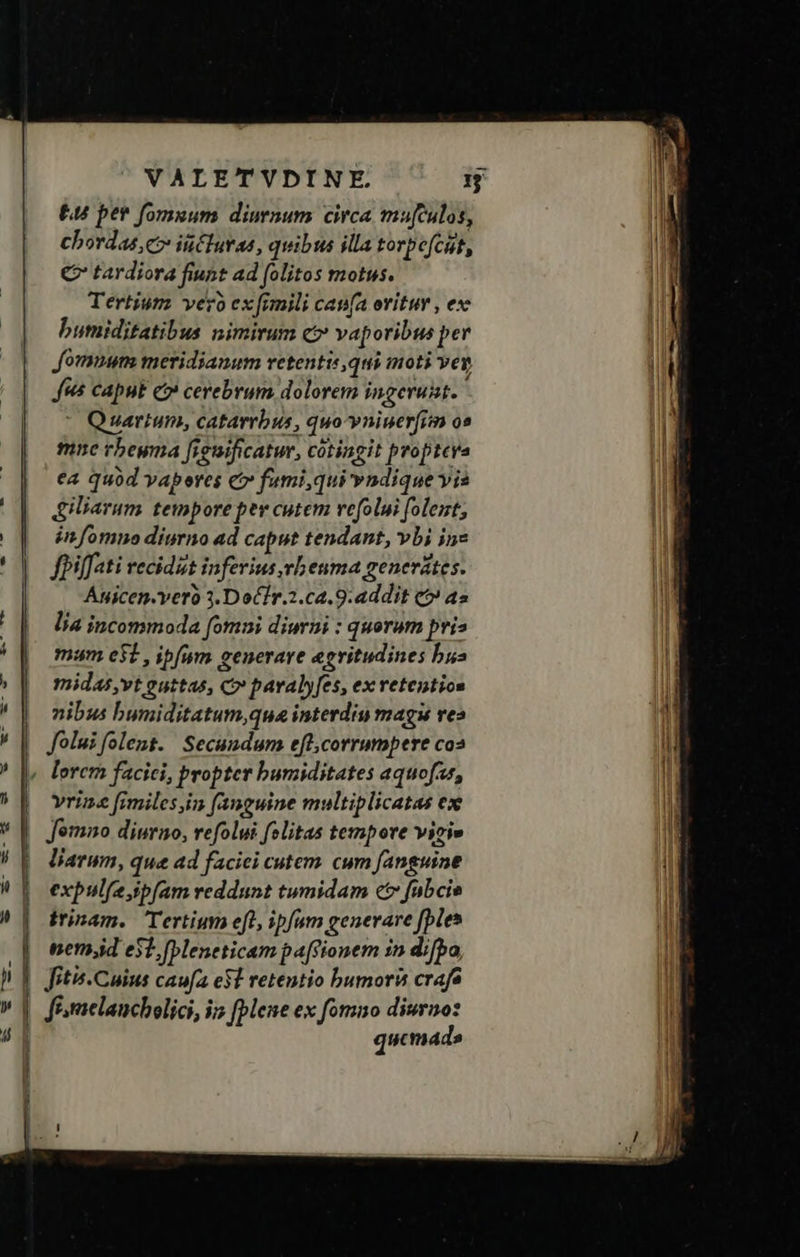 VALETVDINE. 15
tus per ſomnum diurnum circa muſculos,
chordas, & iūcturas, quibus illa torpeſcūt,
& tardiora fiunt ad ſolitos motus.
Tertium verò ex ſimili cauſa oritur, ex
humiditatibus nimirum & vaporibus per
ſomnum meridianum retentis, qui moti ver
ſus caput & cerebrum dolorem ingerunt.
Quartum, catarrhus, quo vniuerſim o-
mne rheuma ſignificatur, cōtingit propterea
ea quòd vapores & fumi, qui vndique vi-
giliarum tempore per cutem reſolui ſolent,
in ſomno diurno ad caput tendant, vbi in-
ſpiſſati recidāt inferius, rheuma generātes.
Auicen. verò 3. Doctr. 2. ca. 9. addit & a-
lia incommoda ſomni diurni : quorum pri-
mum eſt, ipſum generare ægritudines hu-
midas, vt guttas, & paralyſes, ex retentio-
nibus humiditatum, quæ interdiu magis re-
ſolui ſolent. Secundum eſt, corrumpere co-
lorem faciei, propter humiditates aquoſas,
vrinæ ſimiles, in ſanguine multiplicatas ex
ſomno diurno, reſolui ſolitas tempore vigi-
liarum, quæ ad faciei cutem cum ſanguine
expulſæ, ipſam reddunt tumidam & ſubci-
trinam. Tertium eſt, ipſum generare ſple-
nem, id eſt, ſpleneticam paſſionem in diſpo
ſitis. Cuius cauſa eſt retentio humoris craſ-
ſi, melancholici, in ſplene ex ſomno diurno:
quemad-